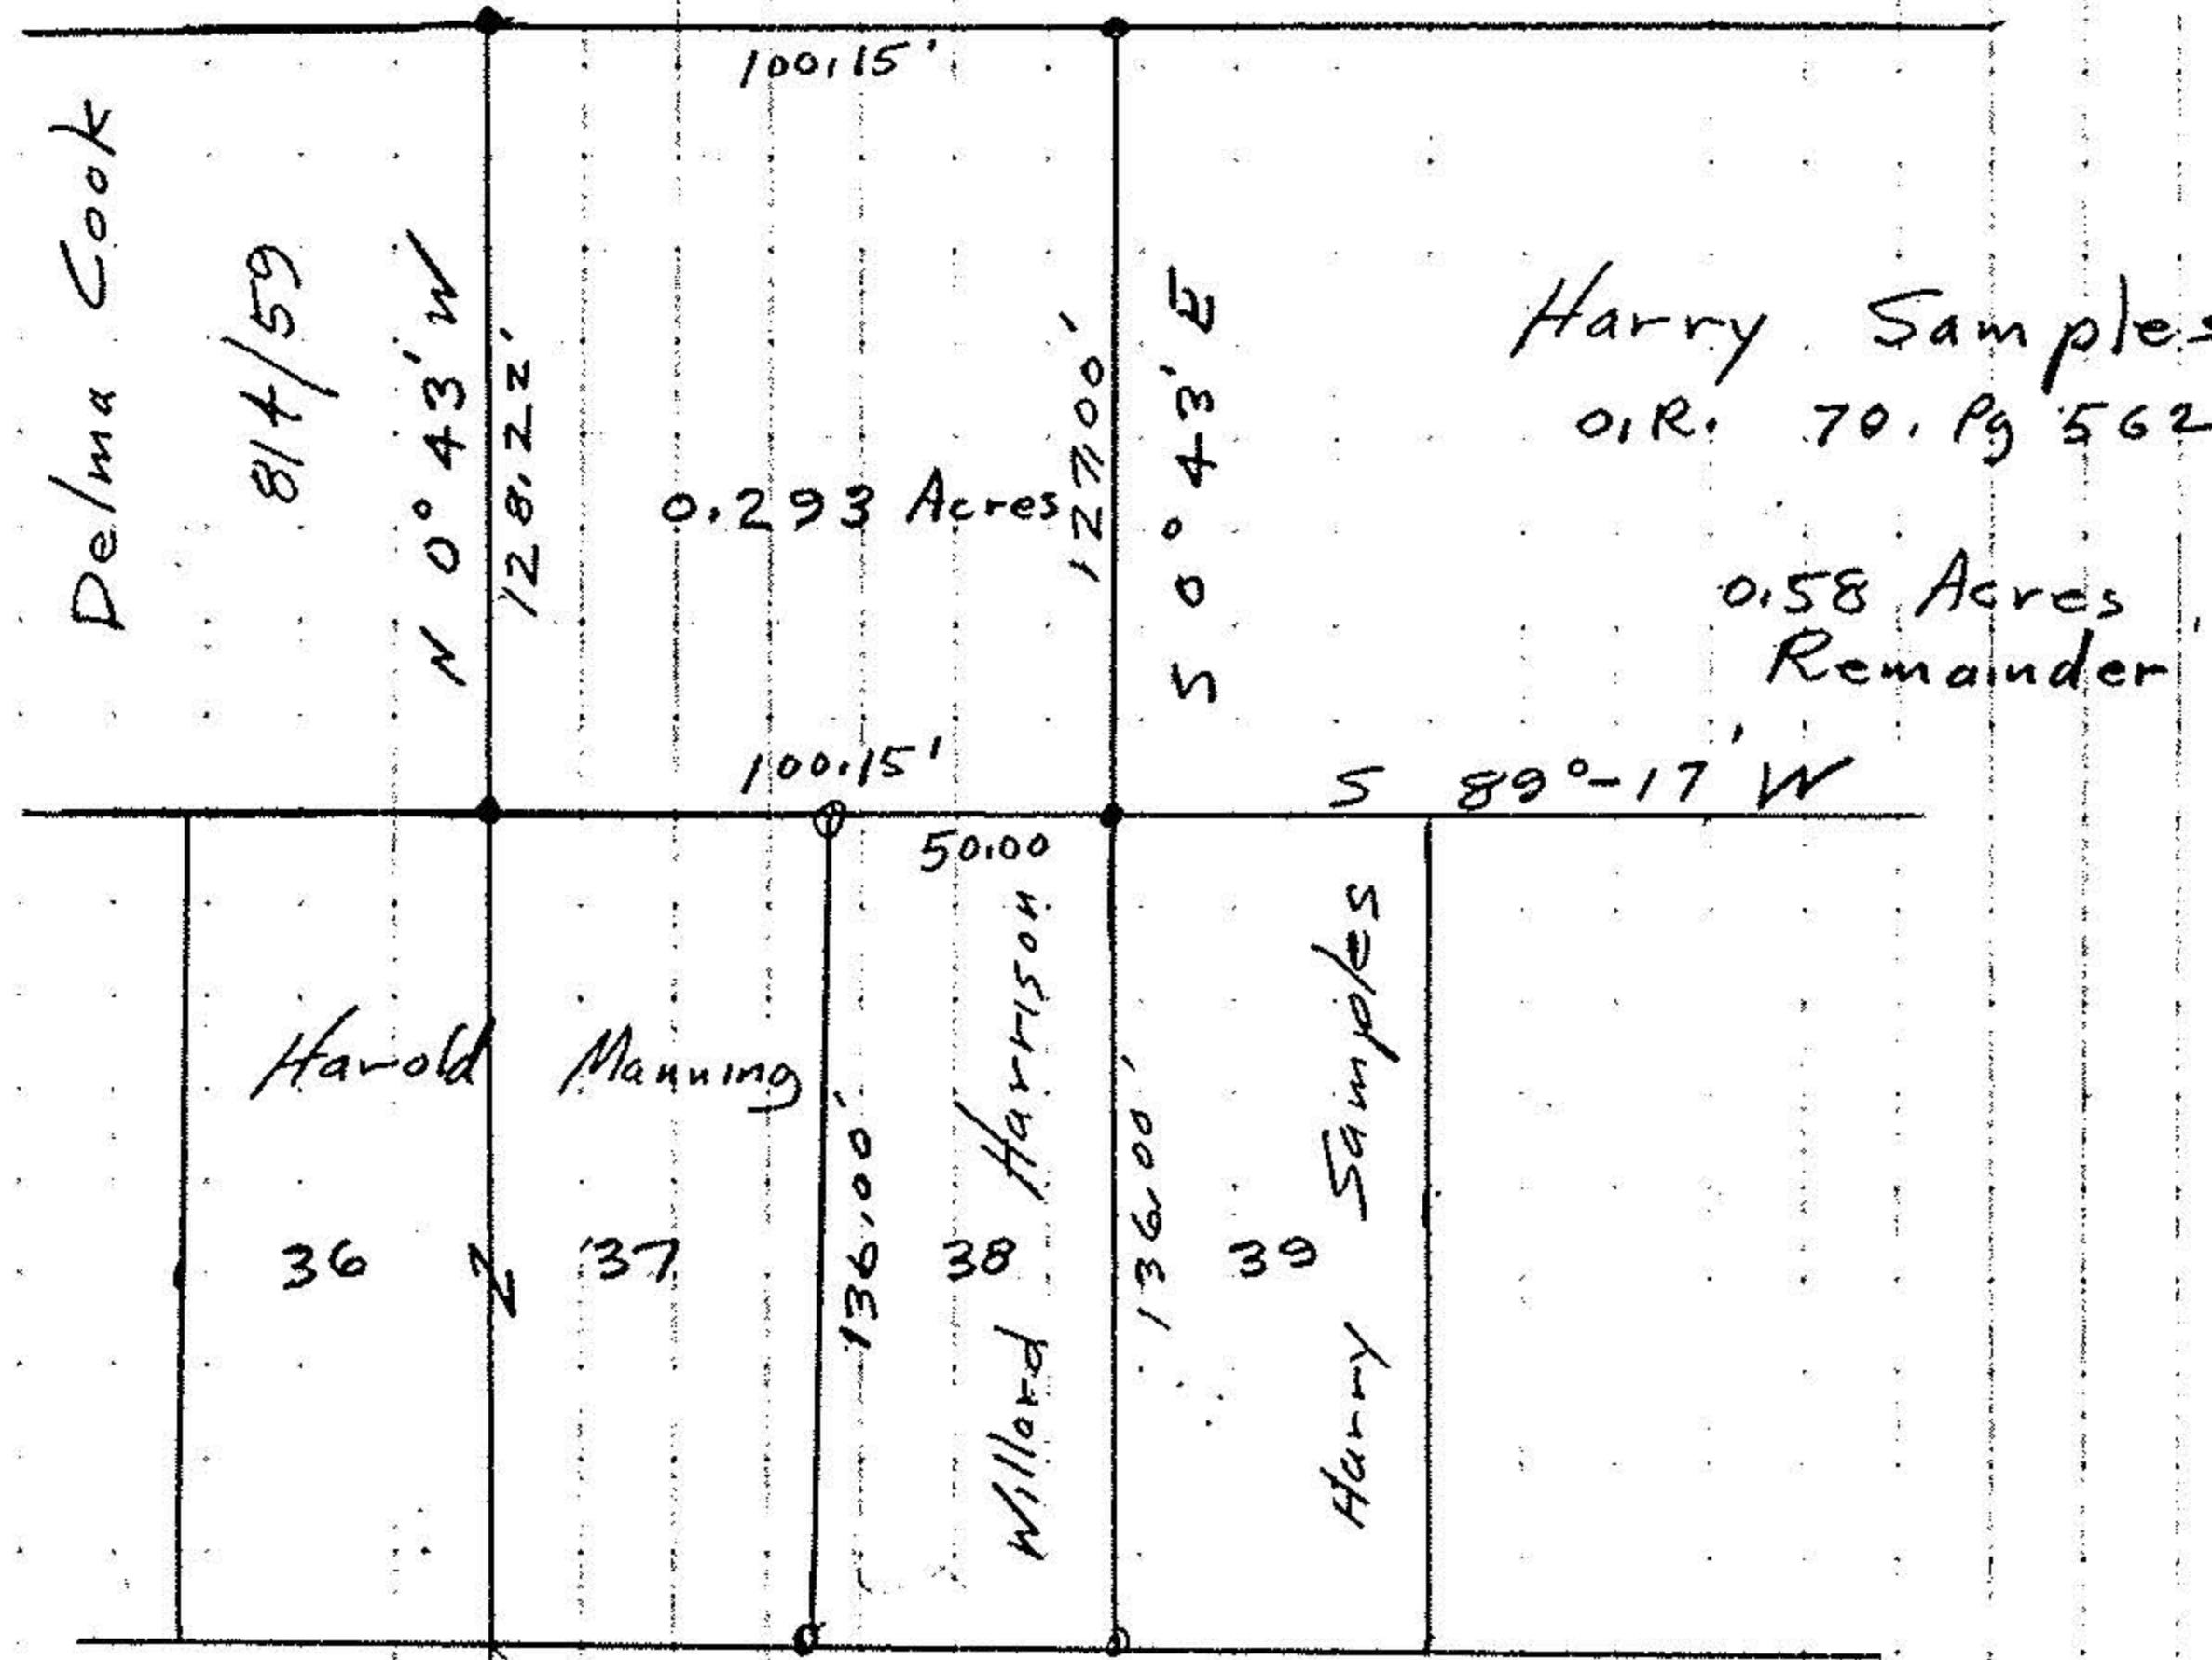 100.15'
Delma Cook
814/59
N 0° 43' W
128.22'
0.293 Acres
127.00'
S 0° 43' E
Harry Samples
O.R. 70. Pg 562
0.58 Acres
Remainder
100.15'
S 89°-17' W
50.00
Harold Manning
36
37
136.00'
38
Willard Harrison
136.00'
39
Harry Samples